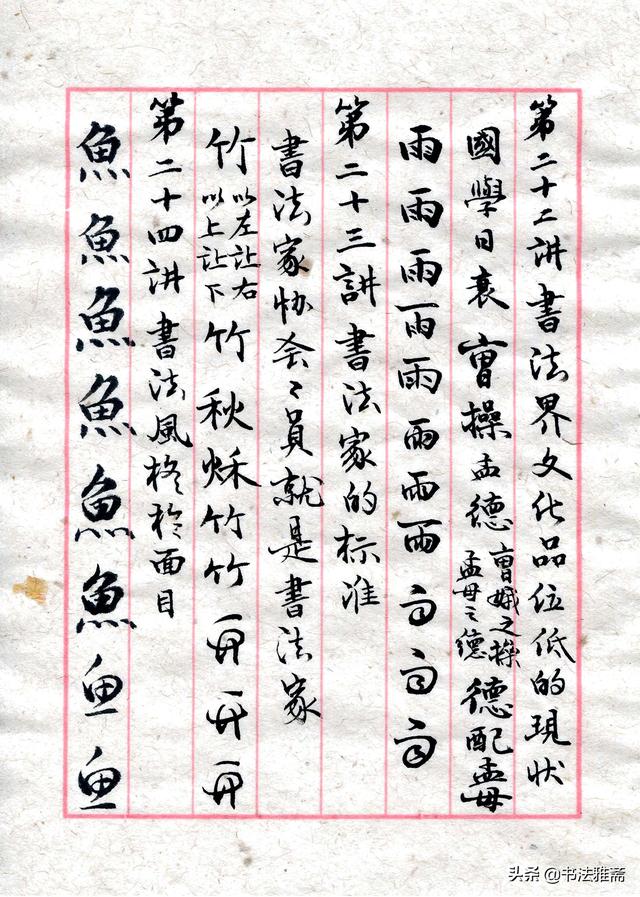 第二十二讲書法界文化品位低的現状
國學日衰 曹操孟德 曹娥之操 孟母之德 德配孟母
雨雨雨雨雨雨雨雨雨雨雨
第二十三讲書法家的标准
書法家协会〻員就是書法家
竹 以左让右 以上让下 竹秋竹竹
第二十四讲書法風格於面目
魚魚魚魚魚魚鱼鱼
头条 @书法雅斋